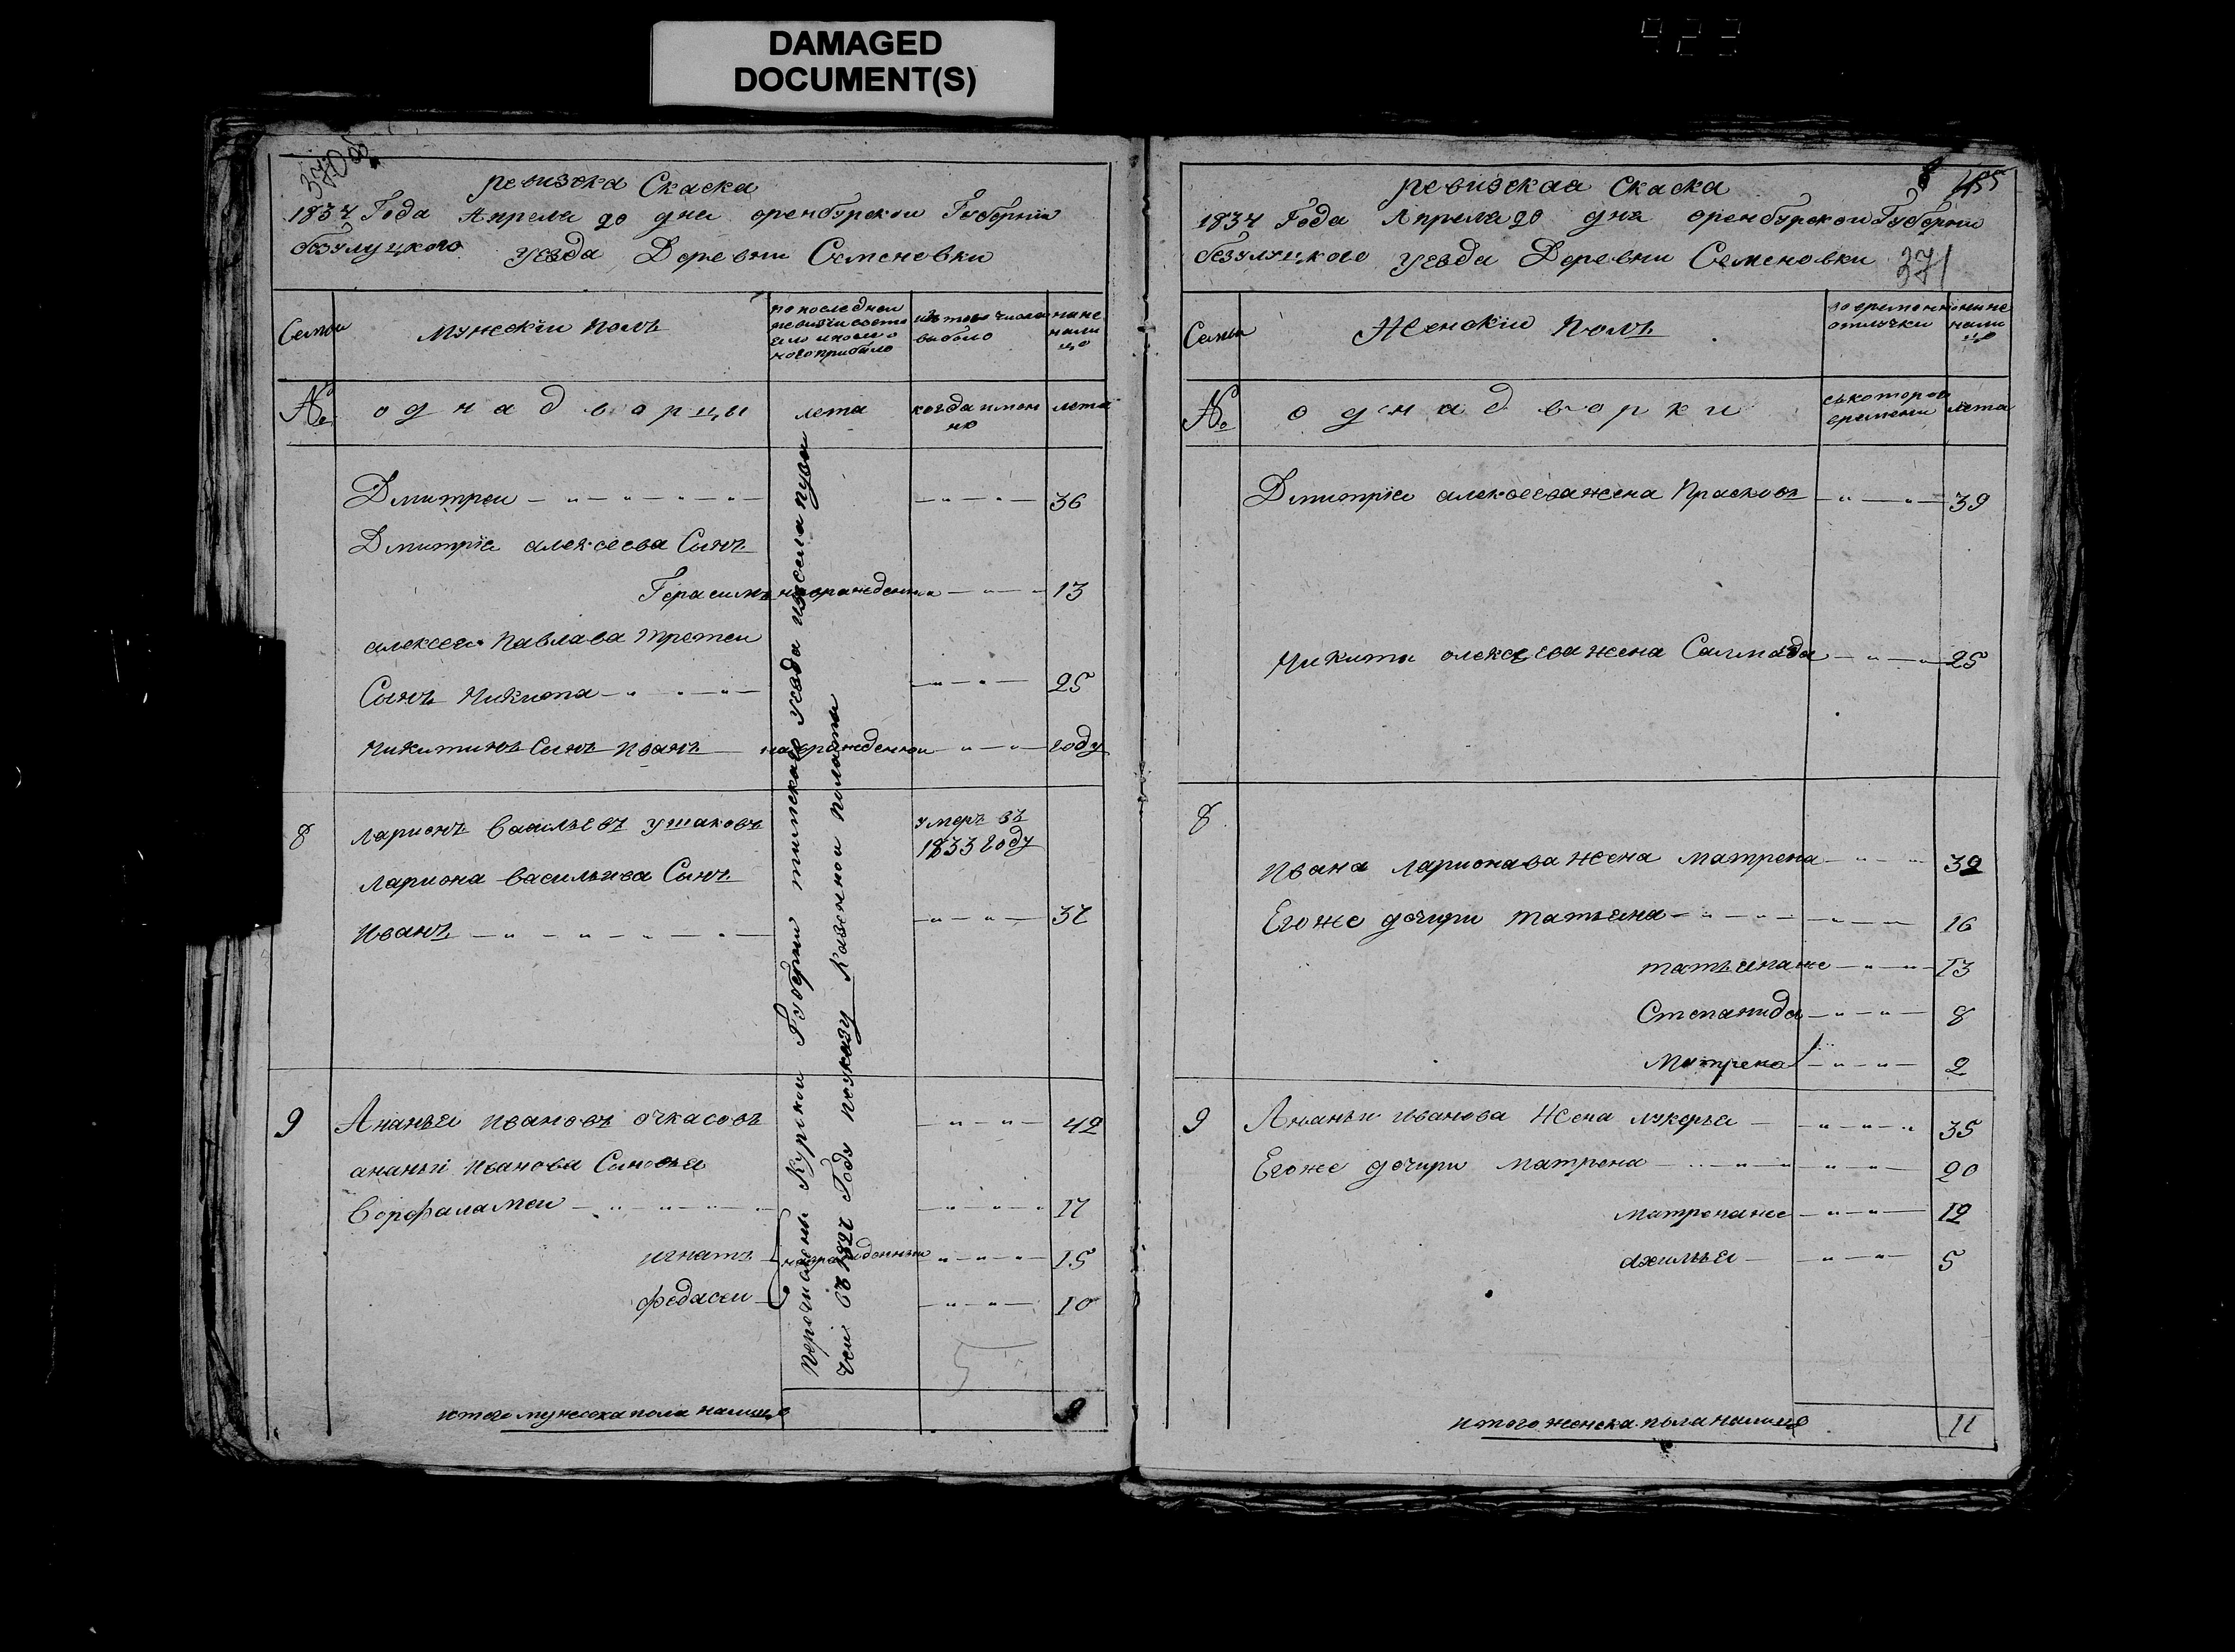 DAMAGED
DOCUMENT(S)
423
370об
ревизска Скаска
1834 Года Апреля 20 дня оренбурскои Губернии
бузулуцкого уезда Деревни Семеновки
Семьи
мужескiи полъ
по последнеи ревизiи состояло и после оного прибыло
изъ того числа выбыло
ныне на лицо
№
однадворцы
лета
когда имянно
лета
Дмитреи 36
Дмитрiя алексеева Сынъ
Герасимъ новорожденныи 13
алексея Павлава третеи
Сынъ Никита 25
Никитинъ Сынъ Иванъ новорожденнои году
8 Ларионъ Васильевъ ушаковъ умеръ въ 1833 году
Лариона Васильява Сынъ
Иванъ 37
9 Ананьи Ивановъ очкасовъ 42
ананьи Иванова Сыновья
Ворфаламеи 17
игнатъ новорожденныи 15
федасеи 10
Перечислены Курскои Губернии тимскаго уезда изсела
въ 1827 Году поуказу Казеннои полаты
итого мужеска пола налицо 9
455
ревизская Скаска
1834 Года Апреля 20 дня оренбурскои Губернии
бузулуцкого уезда Деревни Семеновки 371
Семьи
Женскiи полъ
во временнои отлучки
ныне на лицо
№
однадворки
съ которого времени
лета
Дмитрiя алексеева жена Прасковя 39
Никиты алексева жена 25
8
Ивана Ларионава жена матрена 39
Егоже дочири татьяна 16
татьянаже 13
Степанида 8
Матрена 2
9 Ананьи Иванова Жена лукерья 35
Егоже дочири матрена 20
матренаже 12
акилья 5
итого женска пола налицо 11